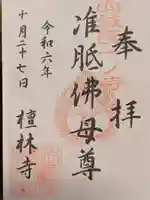 奉拝
准胝佛母尊
令和六年
十月二十七日
檀林寺